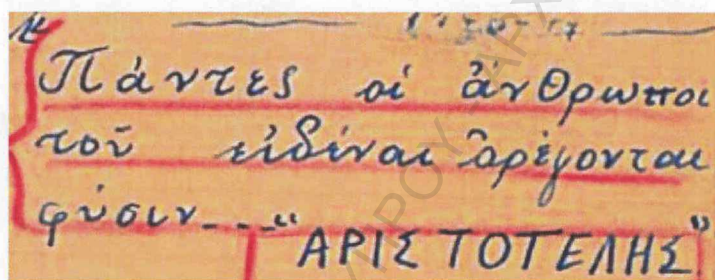 Πάντες οἱ ἄνθρωποι
τοῦ εἰδέναι ὀρέγονται
φύσιν---"ΑΡΙΣΤΟΤΕΛΗΣ"